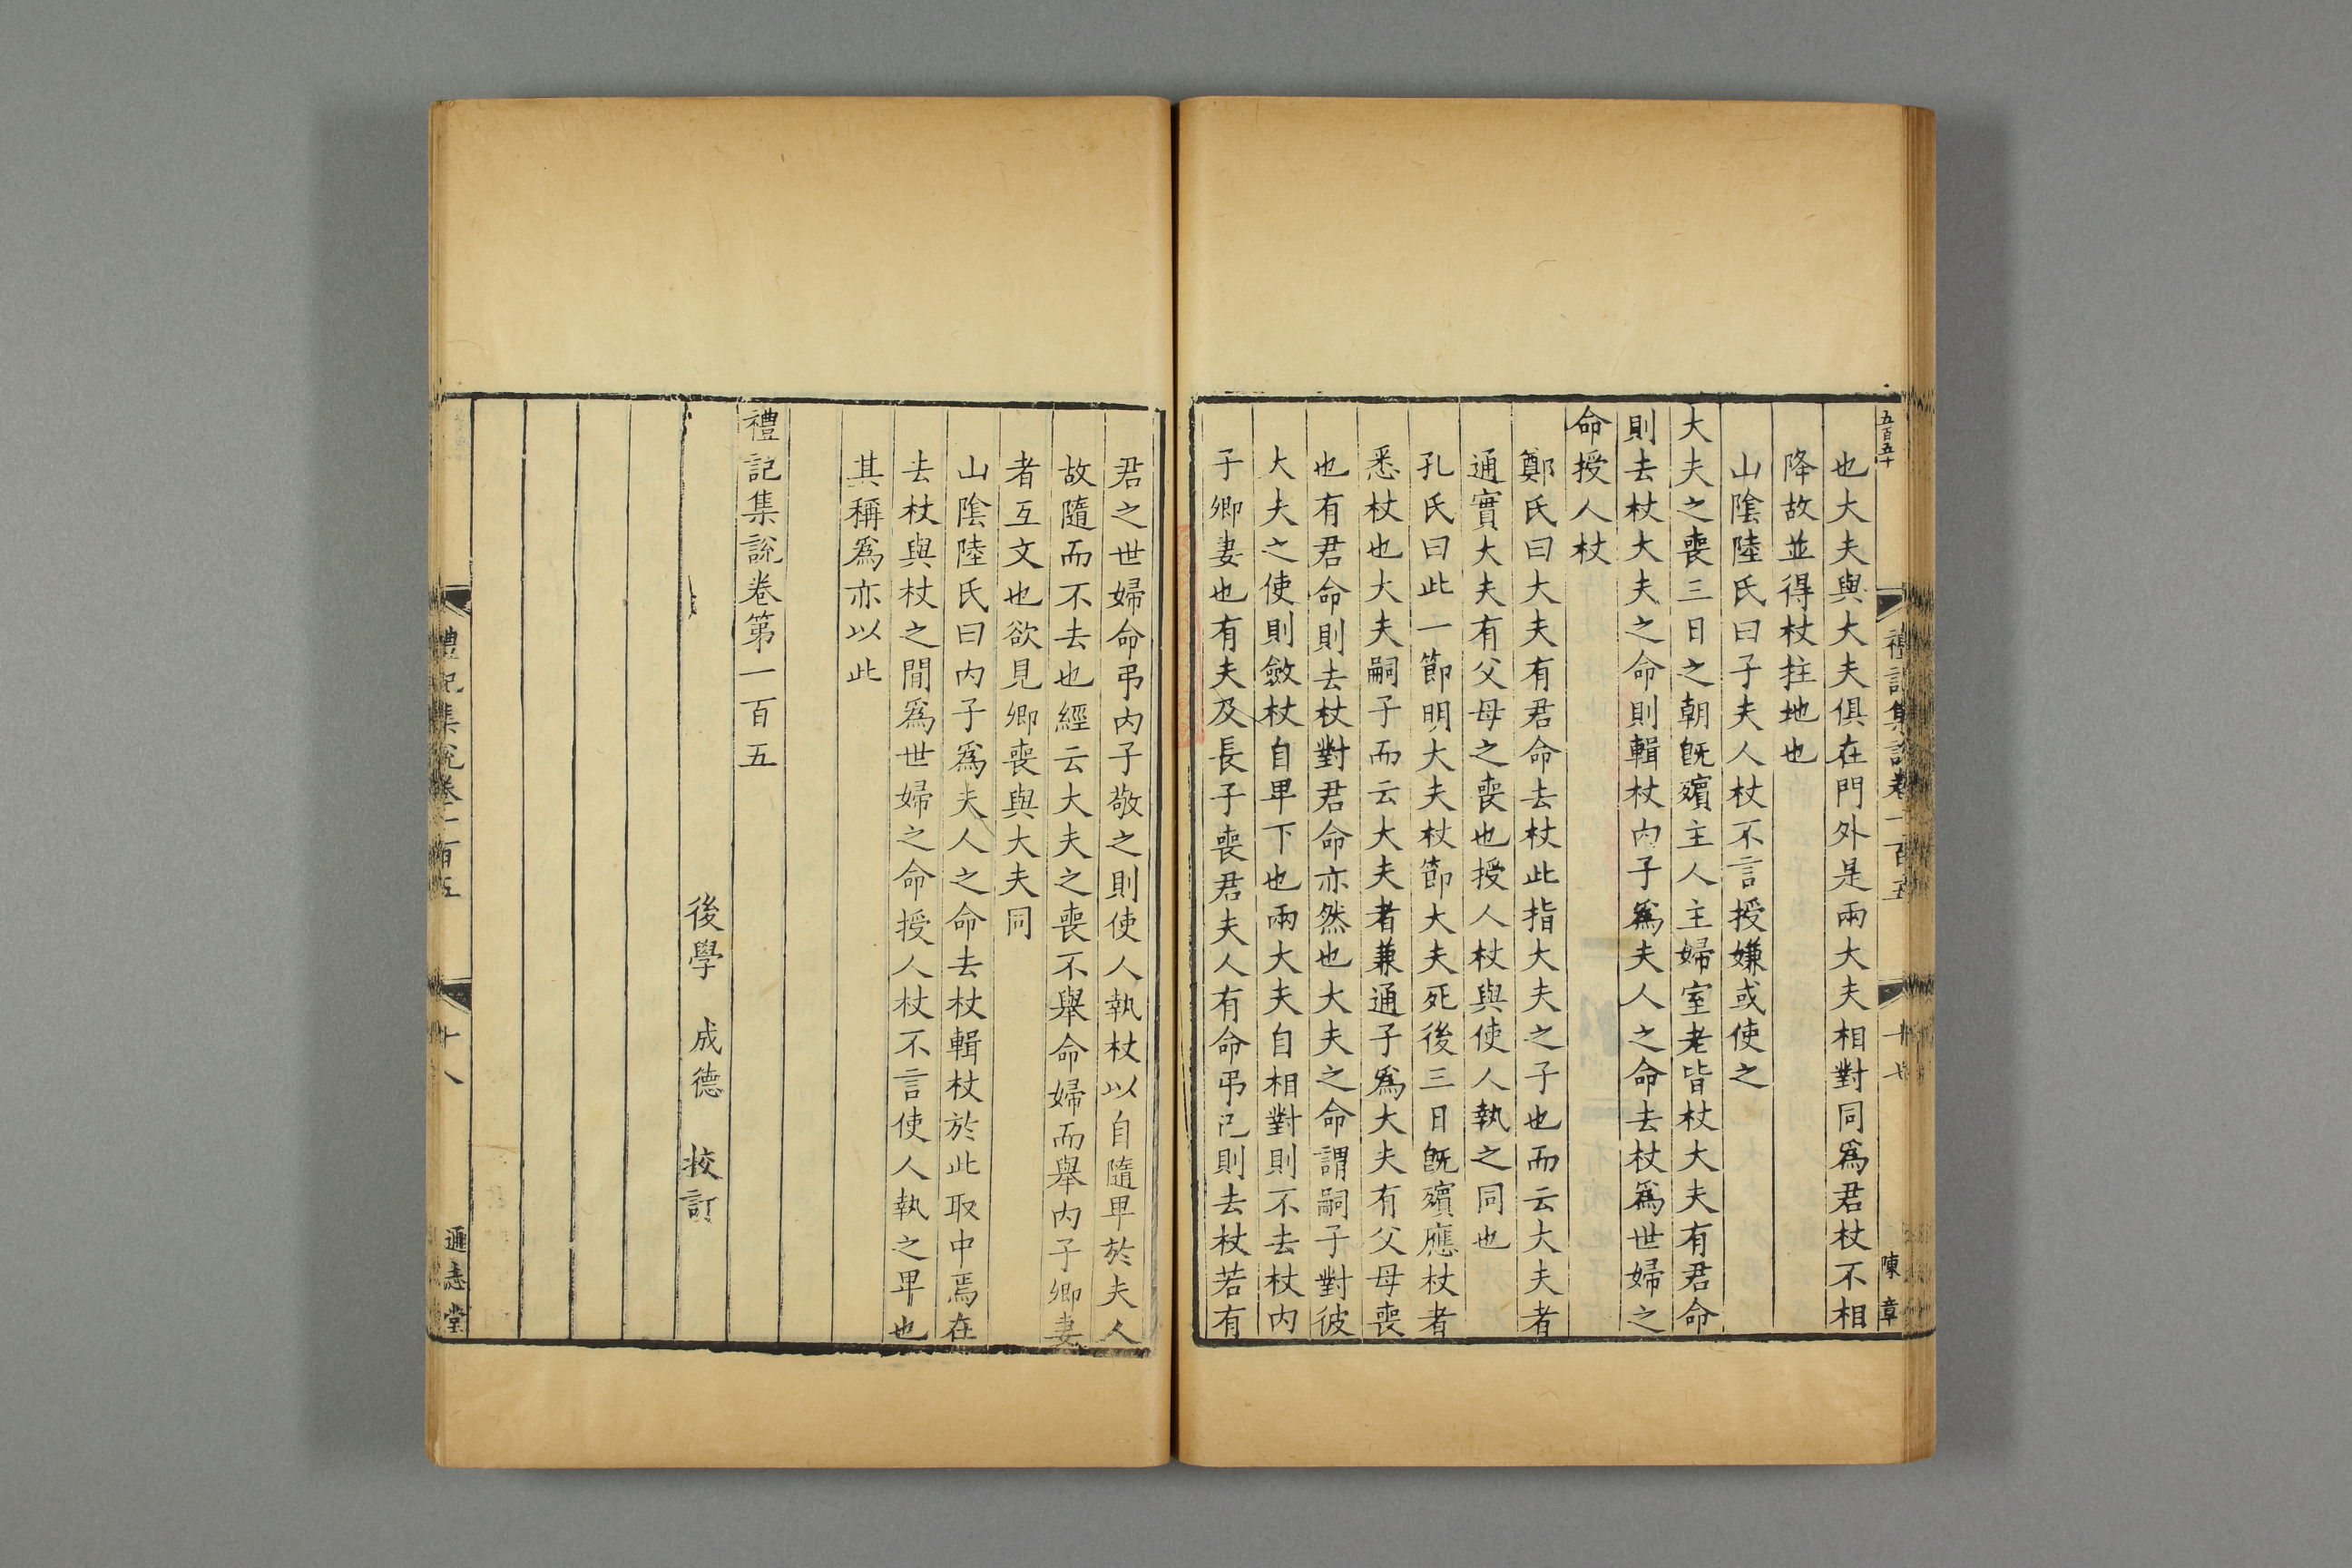 五百五十
禮記集說卷一百五
十七
陳章
也大夫與大夫俱在門外是兩大夫相對同爲君杖不相
降故並得杖拄地也
山陰陸氏曰子夫人杖不言授嫌或使之
大夫之喪三日之朝旣殯主人主婦室老皆杖大夫有君命
則去杖大夫之命則輯杖內子爲夫人之命去杖爲世婦之
命授人杖
鄭氏曰大夫有君命去杖此指大夫之子也而云大夫者
通實大夫有父母之喪也授人杖與使人執之同也
孔氏曰此一節明大夫杖節大夫死後三日旣殯應杖者
悉杖也大夫嗣子而云大夫者兼通子爲大夫有父母喪
也有君命則去杖對君命亦然也大夫之命謂嗣子對彼
大夫之使則斂杖自卑下也兩大夫自相對則不去杖內
子卿妻也有夫及長子喪君夫人有命弔己則去杖若有
君之世婦命弔內子敬之則使人執杖以自隨卑於夫人
故隨而不去也經云大夫之喪不舉命婦而舉內子卿妻
者互文也欲見卿喪與大夫同
山陰陸氏曰內子爲夫人之命去杖輯杖於此取中焉在
去杖與杖之間爲世婦之命授人杖不言使人執之卑也
其稱爲亦以此
禮記集說卷第一百五
後學 成德 挍訂
禮記集說卷一百五
十八
通志堂